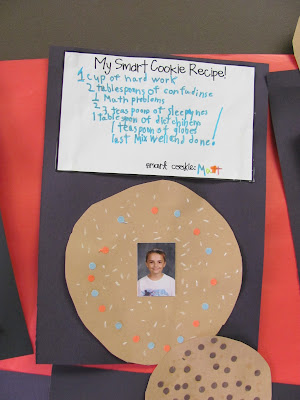 My Smart Cookie Recipe!
1 cup of hard work
2 tablespoons of confadinse
1/2 Math problems
3 teaspoons of sleepynes
1 tablespoon of dictchinem
1 teaspoon of globes
Just Mix well and done!
smart cookie: Matt